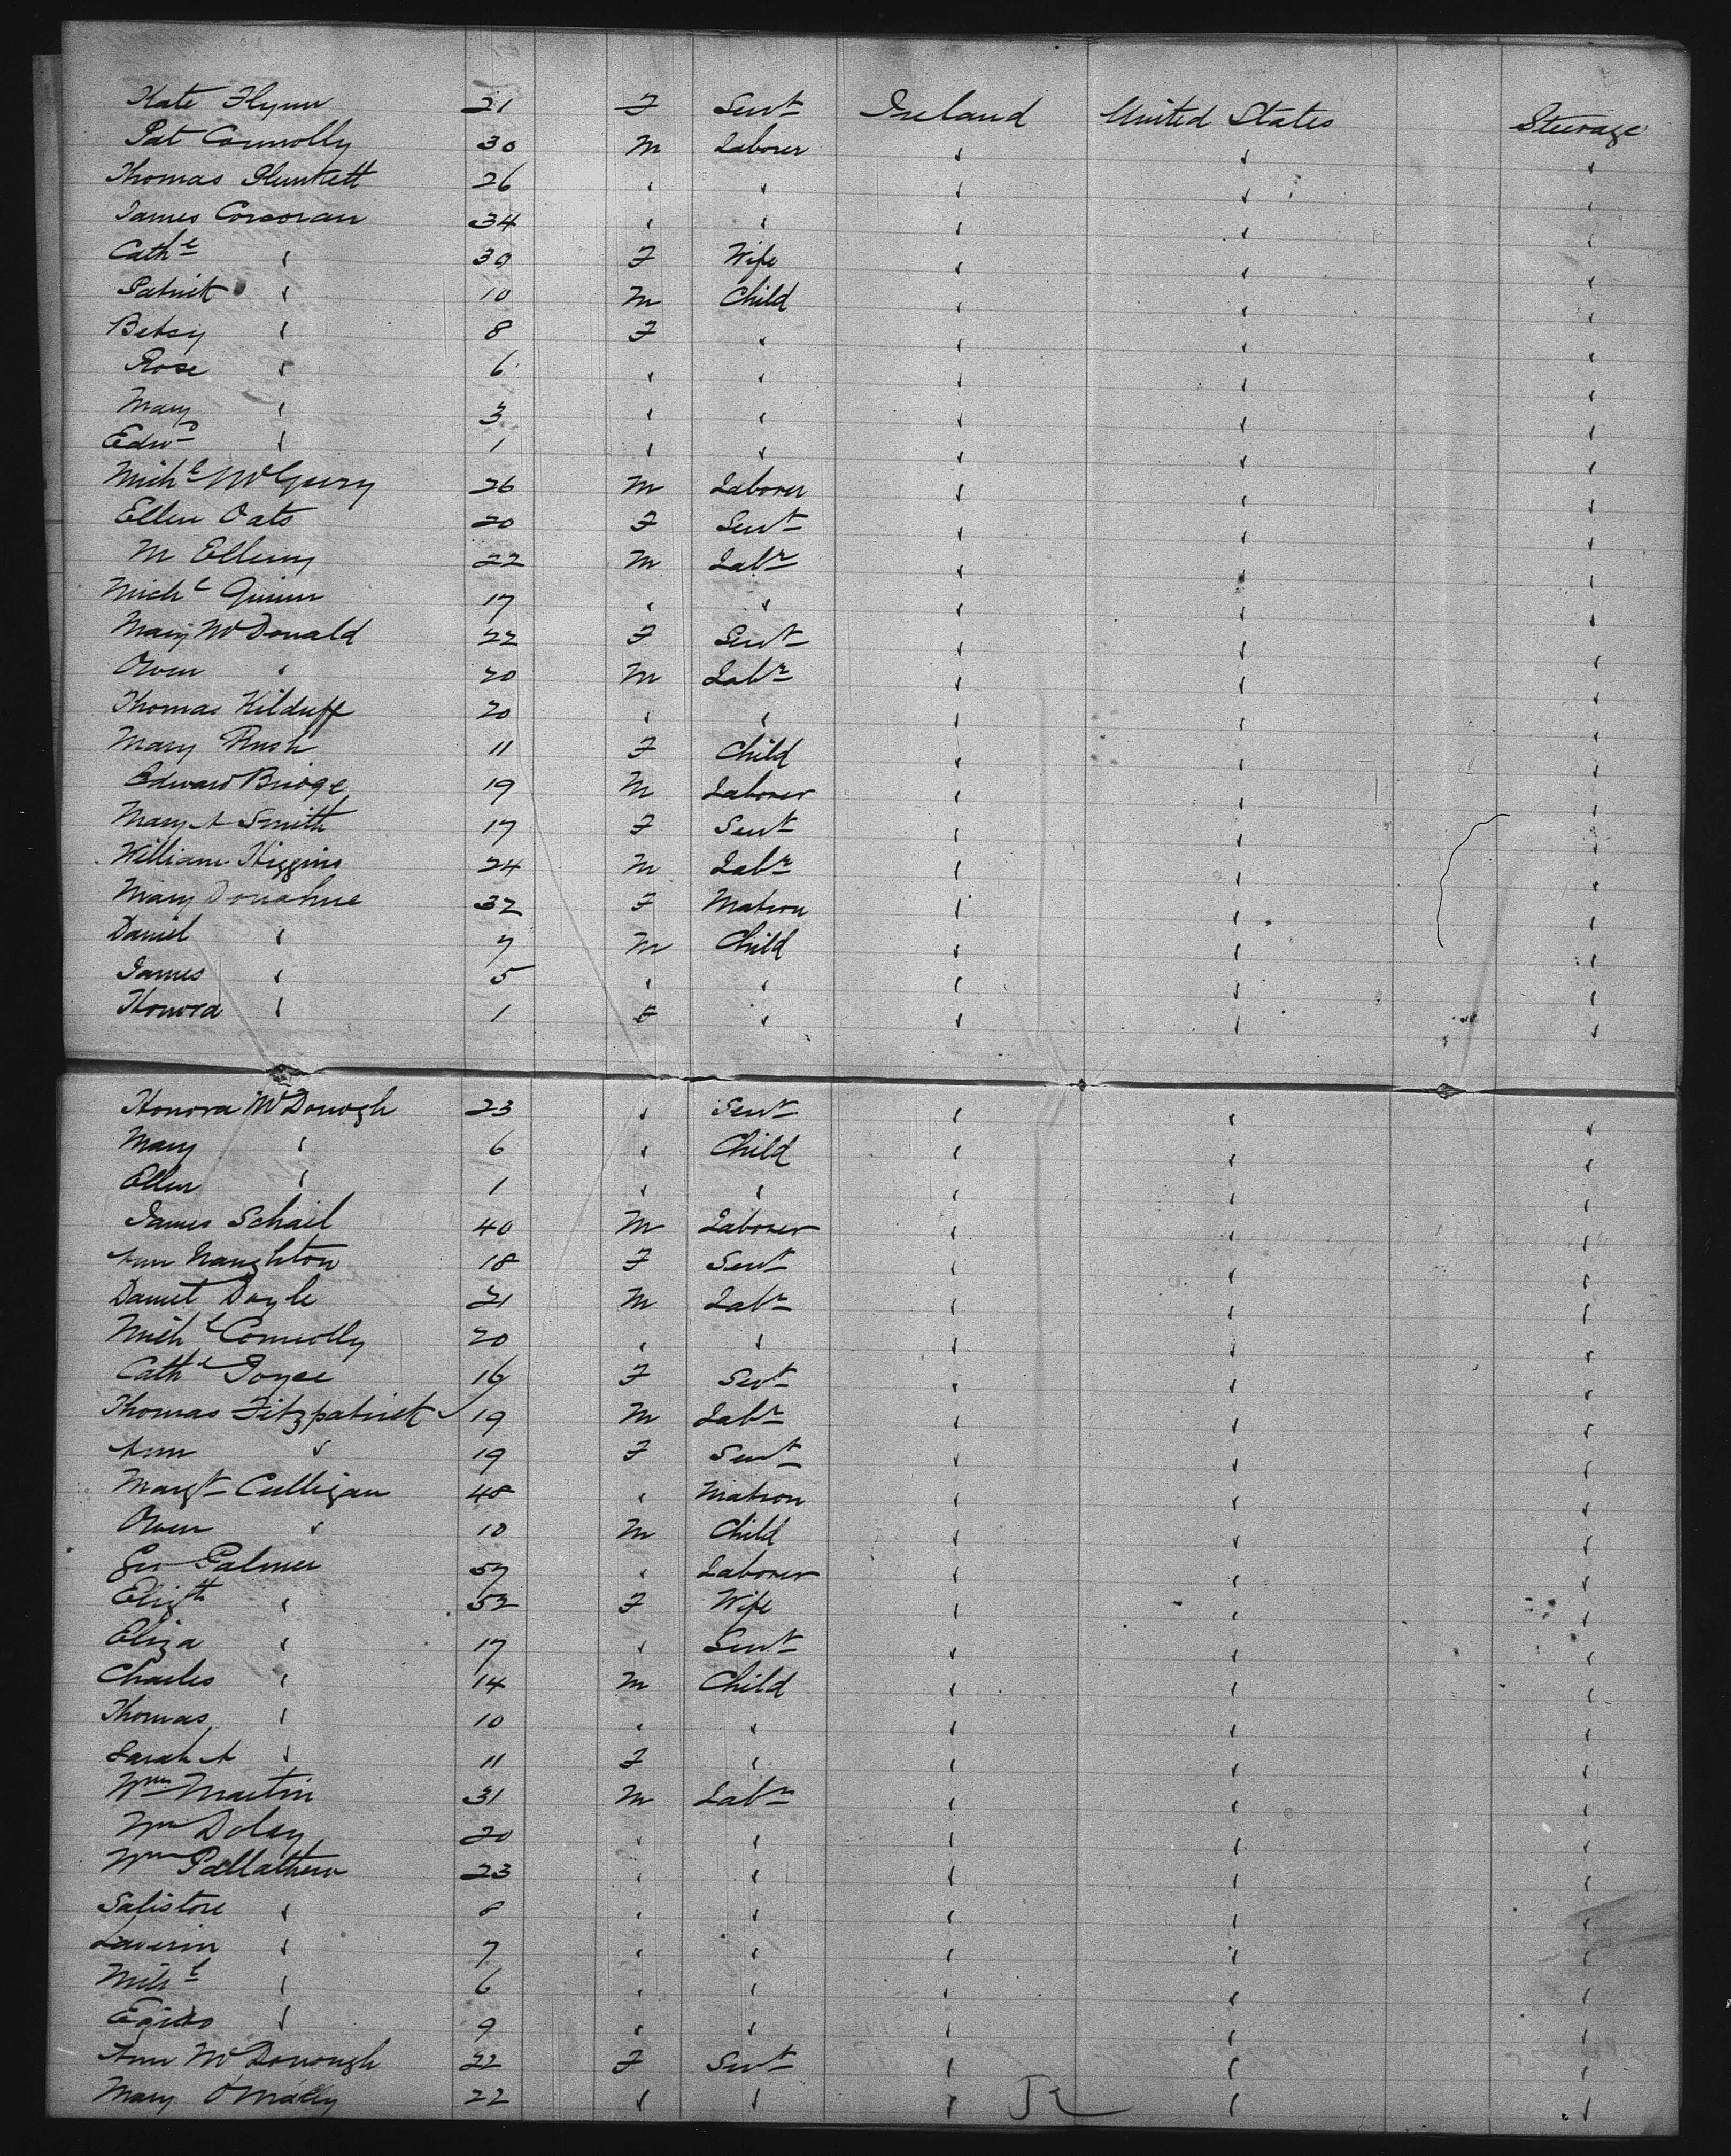 Kate Flynn 21 F Servt Ireland United States Steerage
Pat Connolly 30 M Laborer " " "
Thomas Plunkett 26 " " " " "
James Corcoran 34 " " " " "
Cathe " 30 F Wife " " "
Patrick " 10 M Child " " "
Betsy " 8 F " " " "
Rose " 6 " " " " "
Mary " 3 " " " " "
Edwd " 1 " " " " "
Michl McGeery 26 M Laborer " " "
Ellen Oats 20 F Servt " " "
M Ellery 22 M Labr " " "
Michl Quinn 17 " " " " "
Mary McDonald 22 F Servt " " "
Owen " 20 M Labr " " "
Thomas Kilduff 20 " " " " "
Mary Rush 11 F Child " " "
Edward Bridge 19 M Laborer " " "
Mary A Smith 17 F Servt " " "
William Higgins 24 M Labr " " "
Mary Donahue 32 F Matron " " "
Daniel " 7 M Child " " "
James " 5 " " " " "
Honora " 1 F " " " "
Honora McDonogh 23 " Servt " " "
Mary " 6 " Child " " "
Ellen " 1 " " " " "
James Schail 40 M Laborer " " "
Ann Naughton 18 F Servt " " "
Daniel Doyle 21 M Labr " " "
Michl Connolly 20 " " " " "
Cathe Joyce 16 F Servt " " "
Thomas Fitzpatrick 19 M Labr " " "
Ann " 19 F Servt " " "
Margt Culligan 48 " Matron " " "
Owen " 10 M Child " " "
Geo Palmer 57 " Laborer " " "
Elizth " 52 F Wife " " "
Eliza " 17 " Servt " " "
Charles " 14 M Child " " "
Thomas " 10 " " " " "
Sarah A " 11 F " " " "
Wm Martin 31 M Labr " " "
Wm Doley 20 " " " " "
Wm Pallathew 23 " " " " "
Salistore " 8 " " " " "
Laverin " 7 " " " " "
Michl " 6 " " " " "
" 9 " " " " "
Ann McDonough 22 F Servt " " "
Mary O'Mally 22 " " " " "